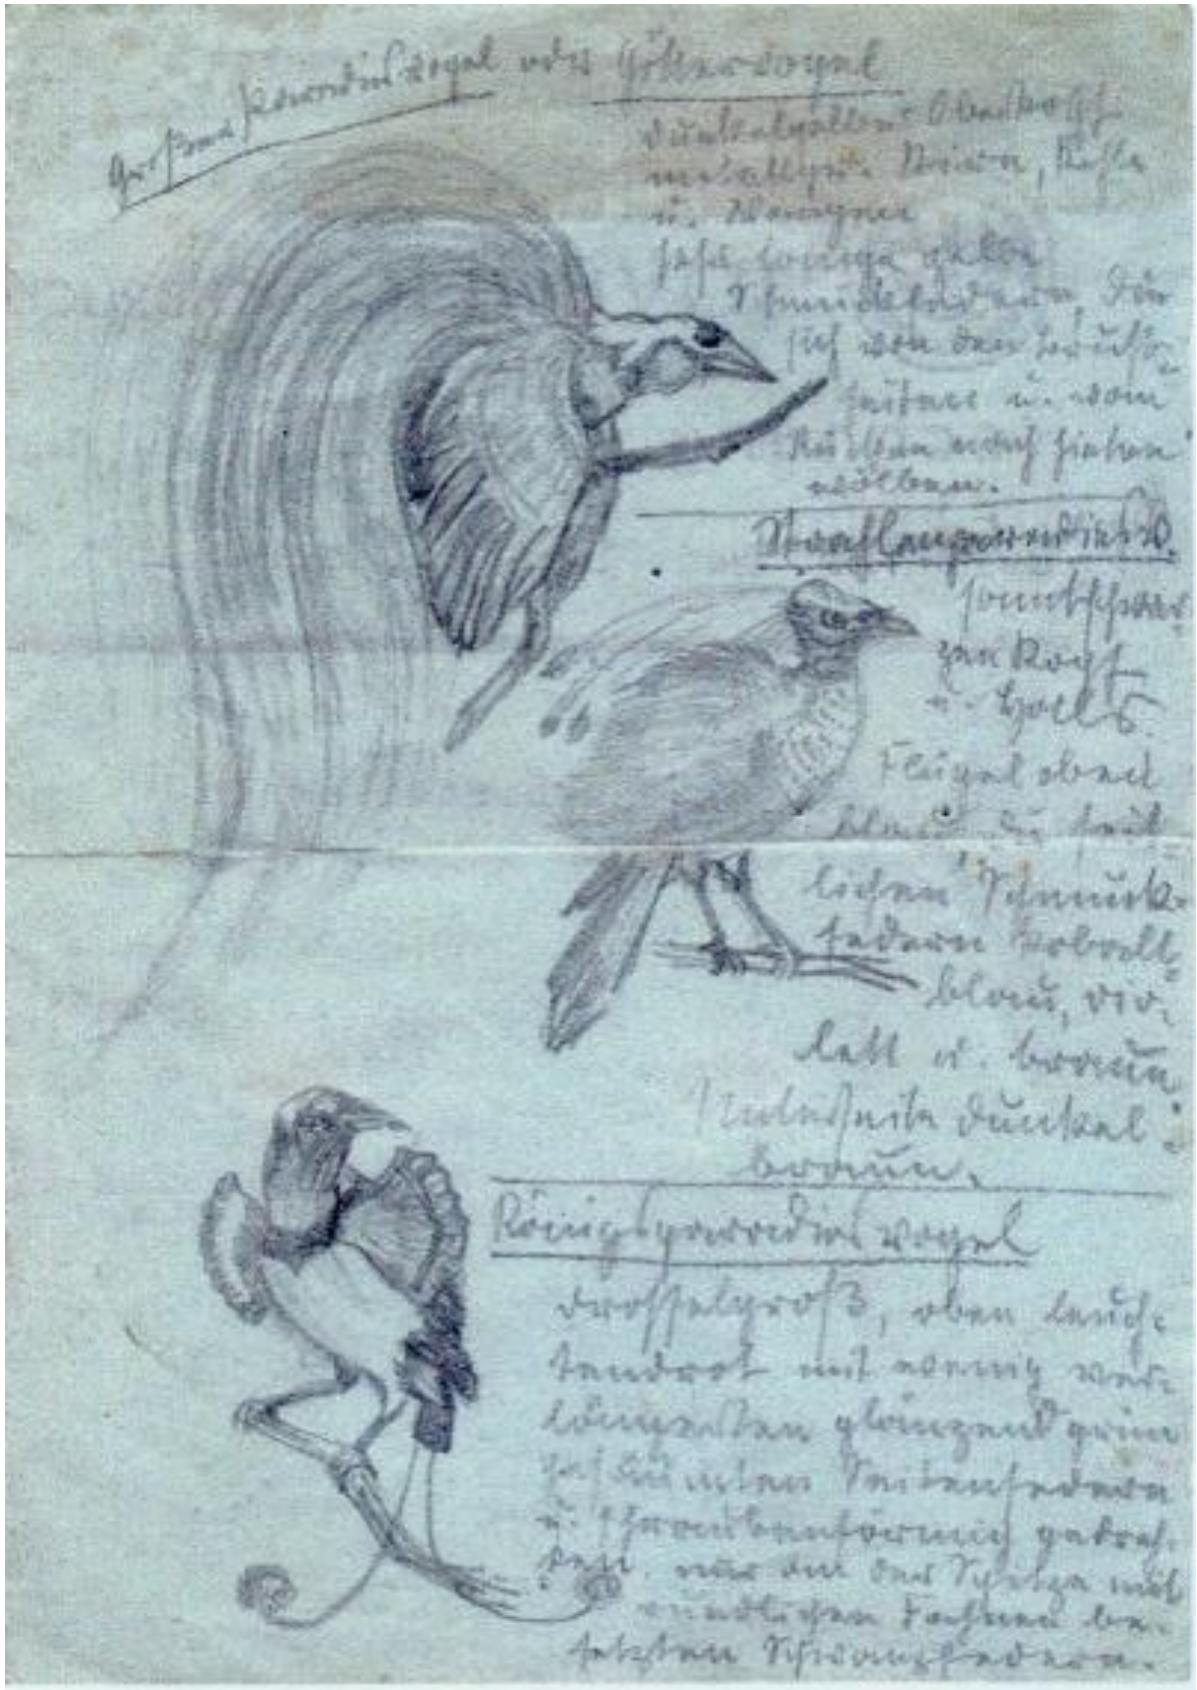 Großer Paradiesvogel oder Göttervogel
dunkelgelber Oberkopf.
metallgr. Stirn, Kehle
u. Wangen
sehr lange gelbe
Schmuckfedern, die
sich von den Brust-
seiten u. vom
Rücken nach hinten
wölben.
Strahlenparadiesv.
samtschwar-
zen Kopf
u. Hals.
Flügel oben
blau, die seit
lichen Schmuck-
federn kobalt-
blau, vio-
lett u. braun
Unterseite dunkel-
braun.
Königsparadiesvogel
drosselgroß, oben leuch-
tendrot mit wenig ver-
längerten glänzend grün
gesäumten Seitenfedern
u. schraubenförmig gedreh-
ten, nur an der Spitze mit
rundlichen Fahnen be-
setzten Schwanzfedern.